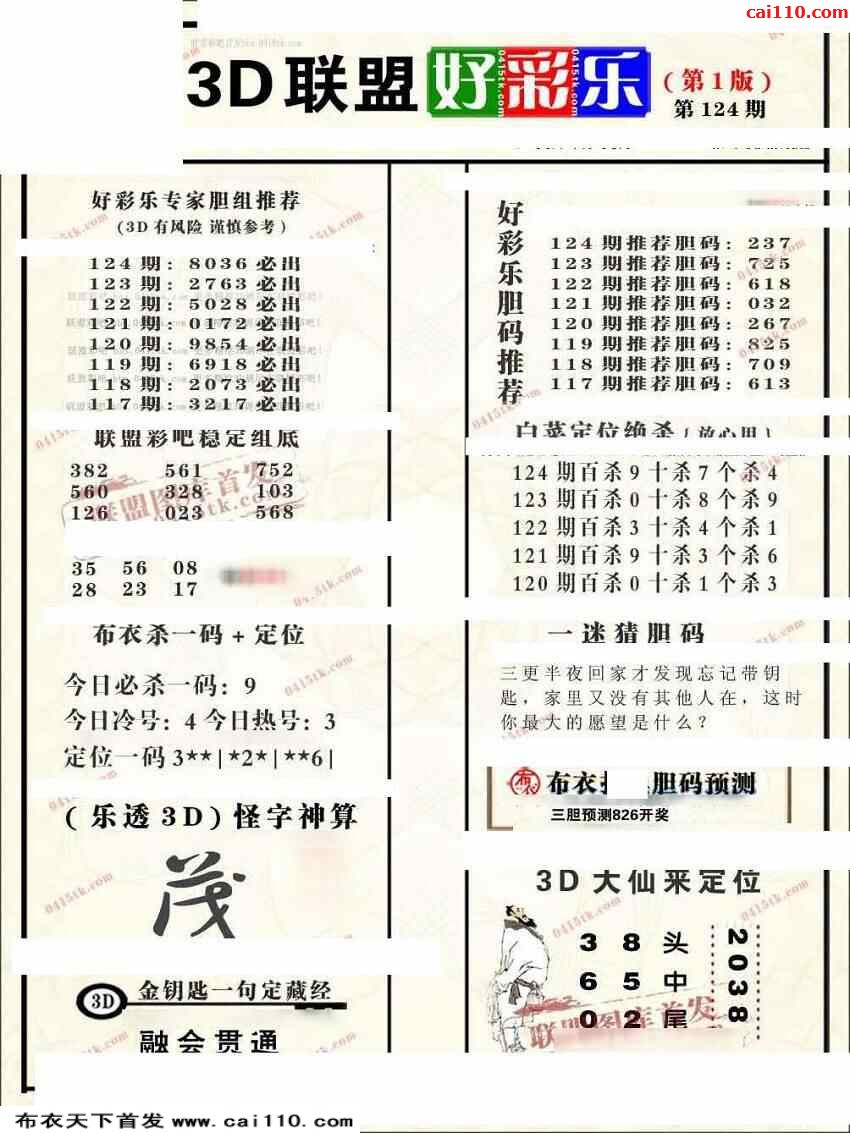 cai110.com
3D联盟好彩乐
(第1版)
第124期
好彩乐专家胆组推荐
(3D有风险 谨慎参考)
124期: 8036必出
123期: 2763必出
122期: 5028必出
121期: 0172必出
120期: 9854必出
119期: 6918必出
118期: 2073必出
117期: 3217必出
联盟彩吧稳定组底
382 561 752
560 328 103
126 023 568
35 56 08
28 23 17
布衣杀一码+定位
今日必杀一码: 9
今日冷号: 4 今日热号: 3
定位一码 3**|*2*|**6|
(乐透3D) 怪字神算
茂
3D 金钥匙一句定藏经
融会贯通
好彩乐胆码推荐
124期推荐胆码: 237
123期推荐胆码: 725
122期推荐胆码: 618
121期推荐胆码: 032
120期推荐胆码: 267
119期推荐胆码: 825
118期推荐胆码: 709
117期推荐胆码: 613
白菜定位绝杀(放心用)
124期百杀9十杀7个杀4
123期百杀0十杀8个杀9
122期百杀3十杀4个杀1
121期百杀9十杀3个杀6
120期百杀0十杀1个杀3
一迷猜胆码
三更半夜回家才发现忘记带钥
匙，家里又没有其他人在，这时
你最大的愿望是什么？
布衣 胆码预测
三胆预测826开奖
3D大仙来定位
3 8 头
6 5 中
0 2 尾
2038
联盟图库首发
0415tk.com
布衣天下首发 www.cai110.com